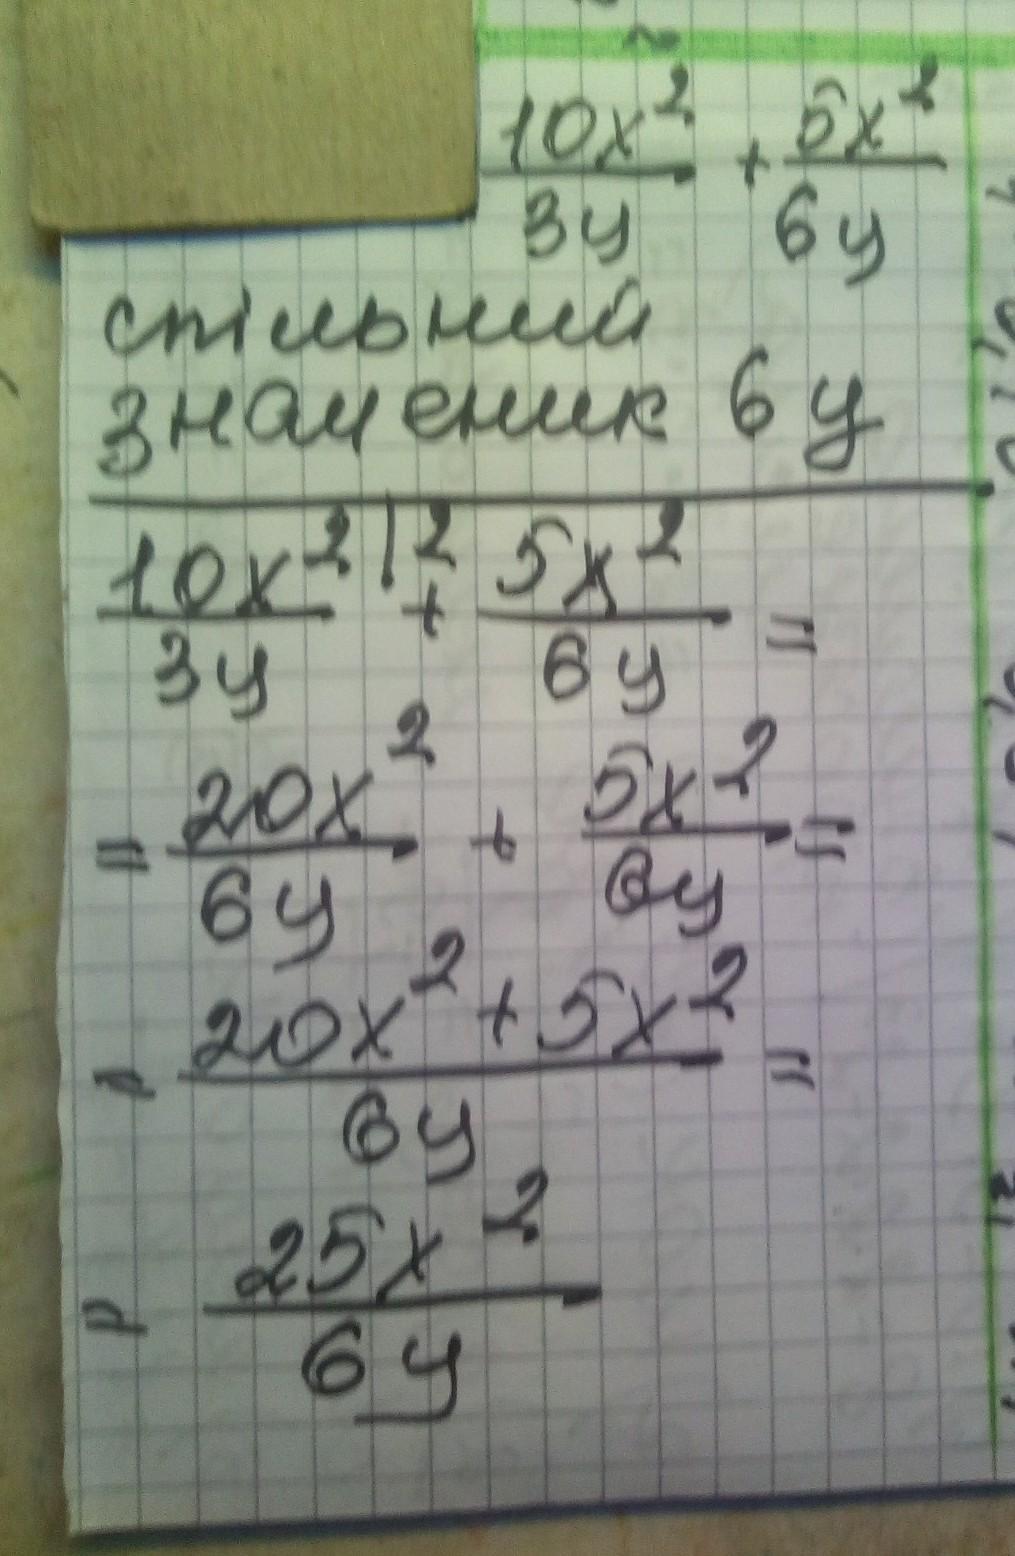 10x²/3y + 5x²/6y
спільний
знаменик 6y
10x²|2/3y + 5x²/6y =
= 20x²/6y + 5x²/6y =
= 20x² + 5x²/6y =
= 25x²/6y